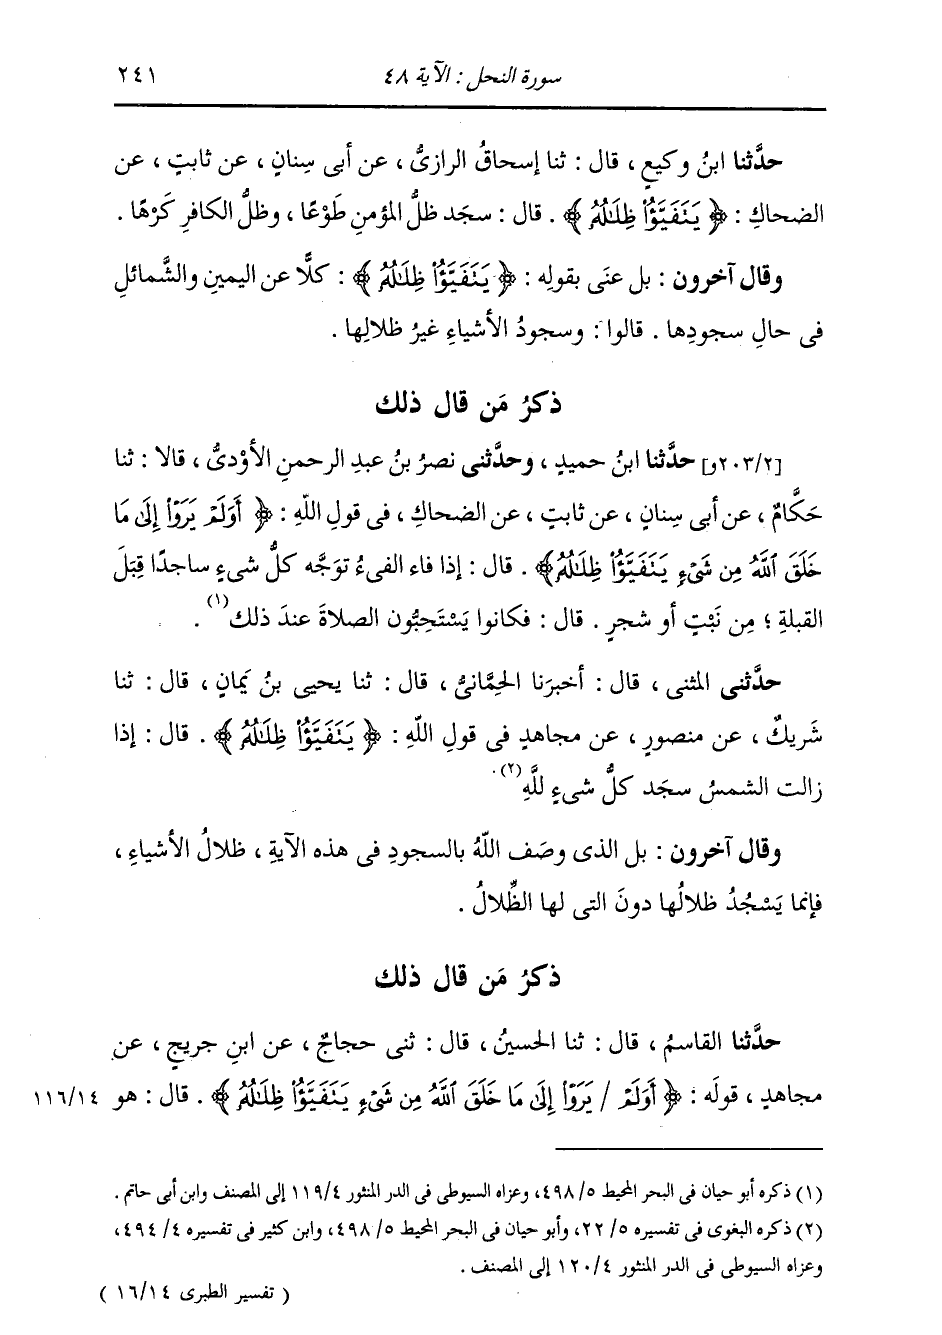 سورة النحل : الآية ٤٨
٢٤١
حدَّثنا ابنُ وكيعٍ ، قال : ثنا إسحاقُ الرازىُّ ، عن أبى سِنانٍ ، عن ثابتٍ ، عن
الضحاكِ : ﴿ يَنَفَيَّؤُاْ ظِلَٰلُهُ ﴾ . قال : سجَد ظلُّ المؤمنِ طَوْعًا ، وظلُّ الكافرِ كَرْهًا .
وقال آخرون : بل عنَى بقولِه : ﴿ يَنَفَيَّؤُاْ ظِلَٰلُهُ ﴾ : كلًّا عن اليمينِ والشَّمائلِ
فى حالِ سجودِها . قالوا : وسجودُ الأشياءِ غيرُ ظلالِها .
ذكرُ مَن قال ذلك
[٢٠٣/٢و] حدَّثنا ابنُ حميدٍ ، وحدَّثنى نصرُ بنُ عبدِ الرحمنِ الأوْدىُّ ، قالا : ثنا
حَكَّامٌ ، عن أبى سِنانٍ ، عن ثابتٍ ، عن الضحاكِ ، فى قولِ اللّهِ : ﴿ أَوَلَمْ يَرَوْاْ إِلَىٰ مَا
خَلَقَ ٱللَّهُ مِن شَىْءٍ يَنَفَيَّؤُاْ ظِلَٰلُهُ﴾ . قال : إذا فاء الفىءُ توَجَّه كلُّ شىءٍ ساجدًا قِبَلَ
القبلةِ ؛ مِن نَبْتٍ أو شجرٍ . قال : فكانوا يَسْتَحِبُّون الصلاةَ عندَ ذلك(١) .
حدَّثنى المثنى ، قال : أخبرَنا الحِمَّانىُّ ، قال : ثنا يحيى بنُ يَمانٍ ، قال : ثنا
شَريكٌ ، عن منصورٍ ، عن مجاهدٍ فى قولِ اللّهِ : ﴿ يَنَفَيَّؤُاْ ظِلَٰلُهُ ﴾ . قال : إذا
زالت الشمسُ سجَد كلُّ شىءٍ للَّهِ(٢) .
وقال آخرون : بل الذى وصَف اللّهُ بالسجودِ فى هذه الآيةِ ، ظلالُ الأشياءِ ،
فإنما يَسْجُدُ ظلالُها دونَ التى لها الظِّلالُ .
ذكرُ مَن قال ذلك
حدَّثنا القاسمُ ، قال : ثنا الحسينُ ، قال : ثنى حجاجٌ ، عن ابنِ جريجٍ ، عن
مجاهدٍ ، قولَه : ﴿ أَوَلَمْ / يَرَوْاْ إِلَىٰ مَا خَلَقَ ٱللَّهُ مِن شَىْءٍ يَنَفَيَّؤُاْ ظِلَٰلُهُ ﴾ . قال : هو ١١٦/١٤
(١) ذكره أبو حيان فى البحر المحيط ٤٩٨/٥، وعزاه السيوطى فى الدر المنثور ١١٩/٤ إلى المصنف وابن أبى حاتم .
(٢) ذكره البغوى فى تفسيره ٢٢/٥، وأبو حيان فى البحر المحيط ٤٩٨/٥، وابن كثير فى تفسيره ٤٩٤/٤،
وعزاه السيوطى فى الدر المنثور ١٢٠/٤ إلى المصنف .
( تفسير الطبرى ١٦/١٤ )